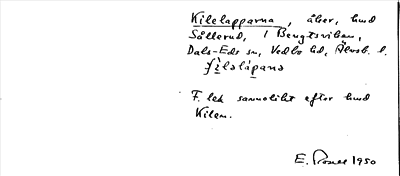 Kilelapparna, åker, hmd
Sållerud, 1 Bengtsviken,
Dals-Eds sn, Vedbo hd, Älvsb. l.
F. led sannolikt efter hmd
Kilen.
E. 1950